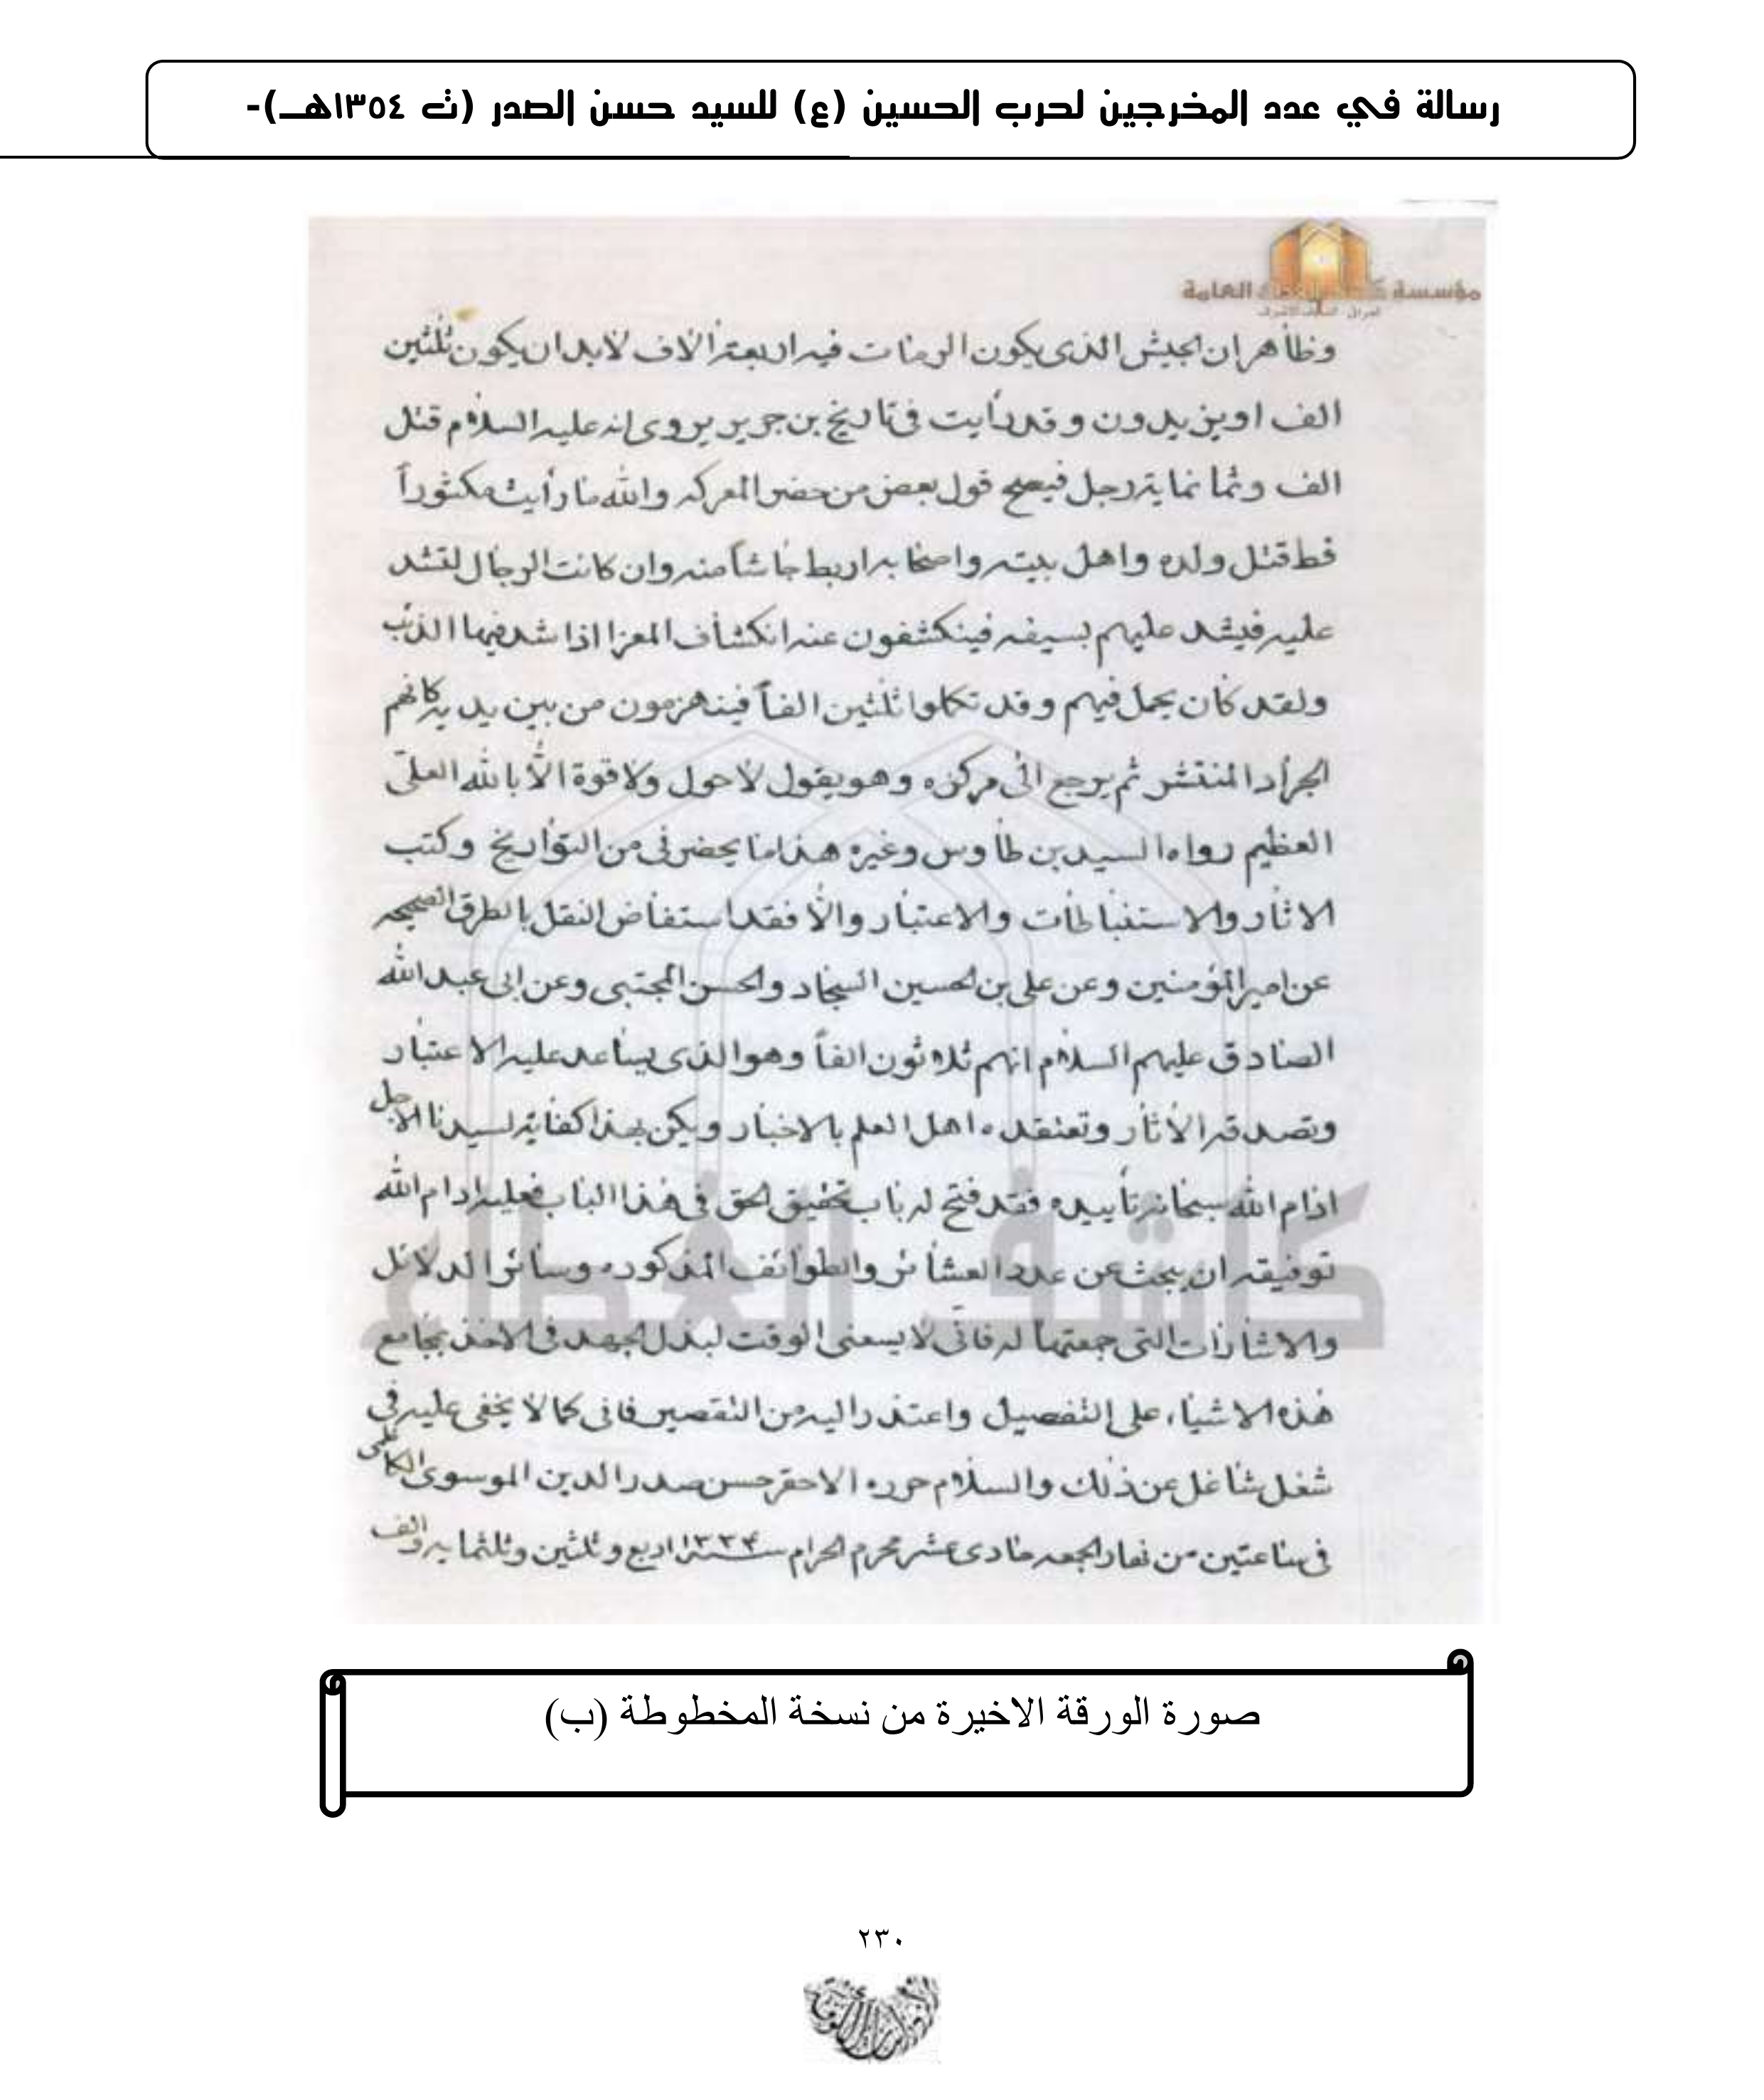 رسالة في عدد المخرجين لحرب الحسين (ع) للسيد حسن الصدر (ت ١٣٥٤هـ)-
مؤسسة كاشف الغطاء العامة
وظاهر ان الجيش الذى يكون الرمات فيه اربعة آلاف لابد ان يكون ثلثين
الف او يزيدون وقد رأيت فى تاريخ بن جرير يروى انه عليه السلام قتل
الف وثمانماية رجل فيصح قول بعض من حضر المعركه والله ما رأيت مكثوراً
قط قتل ولده واهل بيته واصحابه اربط جاشاً منه وان كانت الرجال لتشد
عليه فيشد عليهم بسيفه فينكشفون عنه انكشاف المعزا اذا شد فيها الذئب
ولقد كان يحمل فيهم وقد تكملوا ثلثين الفاً فينهزمون من بين يديه كانهم
الجراد المنتشر ثم يرجع الى مركزه وهو يقول لاحول ولا قوة الّا بالله العلىّ
العظيم رواه السيد بن طاوس وغيره هذا ما يحضرنى من التواريخ وكتب
الاثار والاستنباطات والاعتبار والّا فقد استفاض النقل بالطرق الصحيحه
عن امير المؤمنين وعن على بن الحسين السجاد والحسن المجتبى وعن ابى عبد الله
الصادق عليهم السلام انهم ثلاثون الفاً وهو الذى يساعد عليه الاعتبار
وتصدقه الاثار وتعتقده اهل العلم بالاخبار ويكن بهذا كفاية لسيدنا الاجل
ادام الله سبحانه تأييده فقد فتح له باب تحقيق الحق فى هذا الباب فعليه ادام الله
توفيقه ان يبحث عن عدد العشائر والطوائف المذكوره وسائر الدلائل
والاشارات التى جمعتها له فانّى لا يسعنى الوقت لبذل الجهد فى الاخذ بجامع
هذه الاشياء على التفصيل واعتذر اليه من التقصير فانى كما لا يخفى عليه فى
شغل شاغل عن ذلك والسلام حرره الاحقر حسن صدر الدين الموسوى الكاظمى
فى ساعتين من نهار الجمعه حادى عشر محرم الحرام سنة ١٣٣٤ اربع وثلثين وثلثمايه والف
كاشف الغطاء
صورة الورقة الاخيرة من نسخة المخطوطة (ب)
٢٣٠